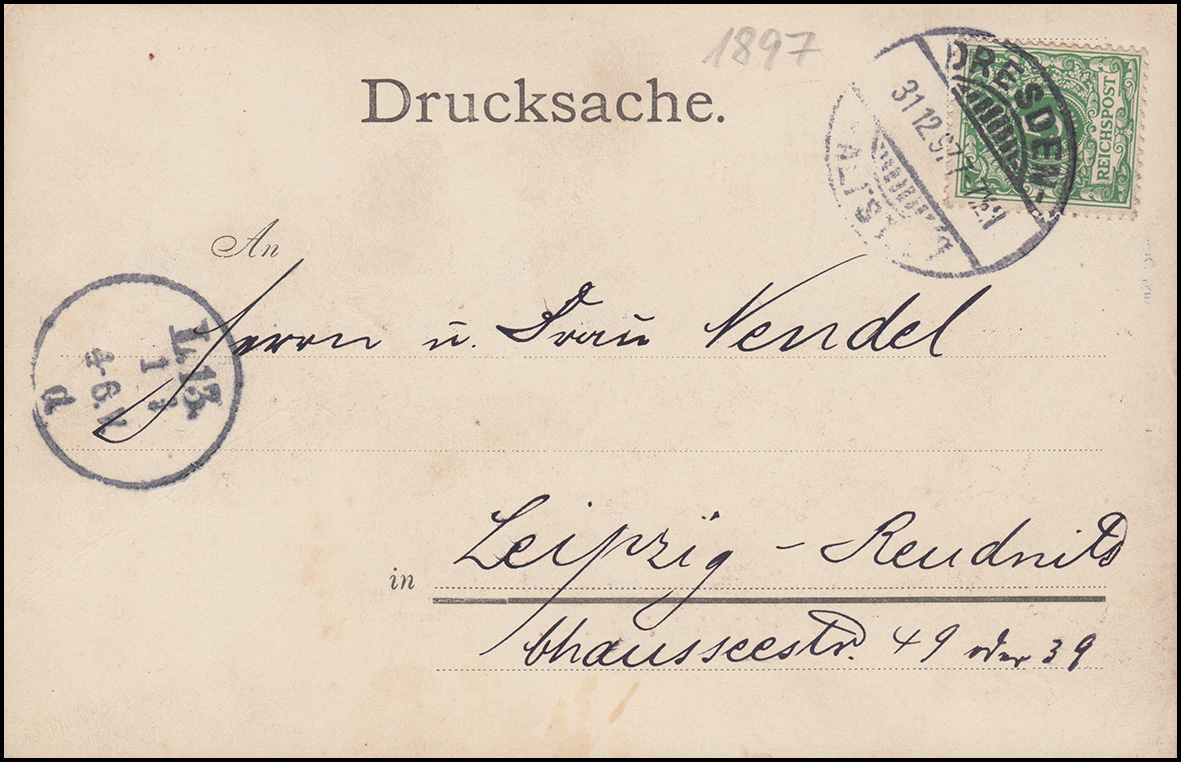 1897
Drucksache.
DRESDEN-
31 12 97
ALTST.
REICHSPOST
An
Herrn u. Frau Nendel
L. 13.
1 1
4-6.V.
a.
in
Leipzig - Reudnitz
Chausseestr. 49 oder 39